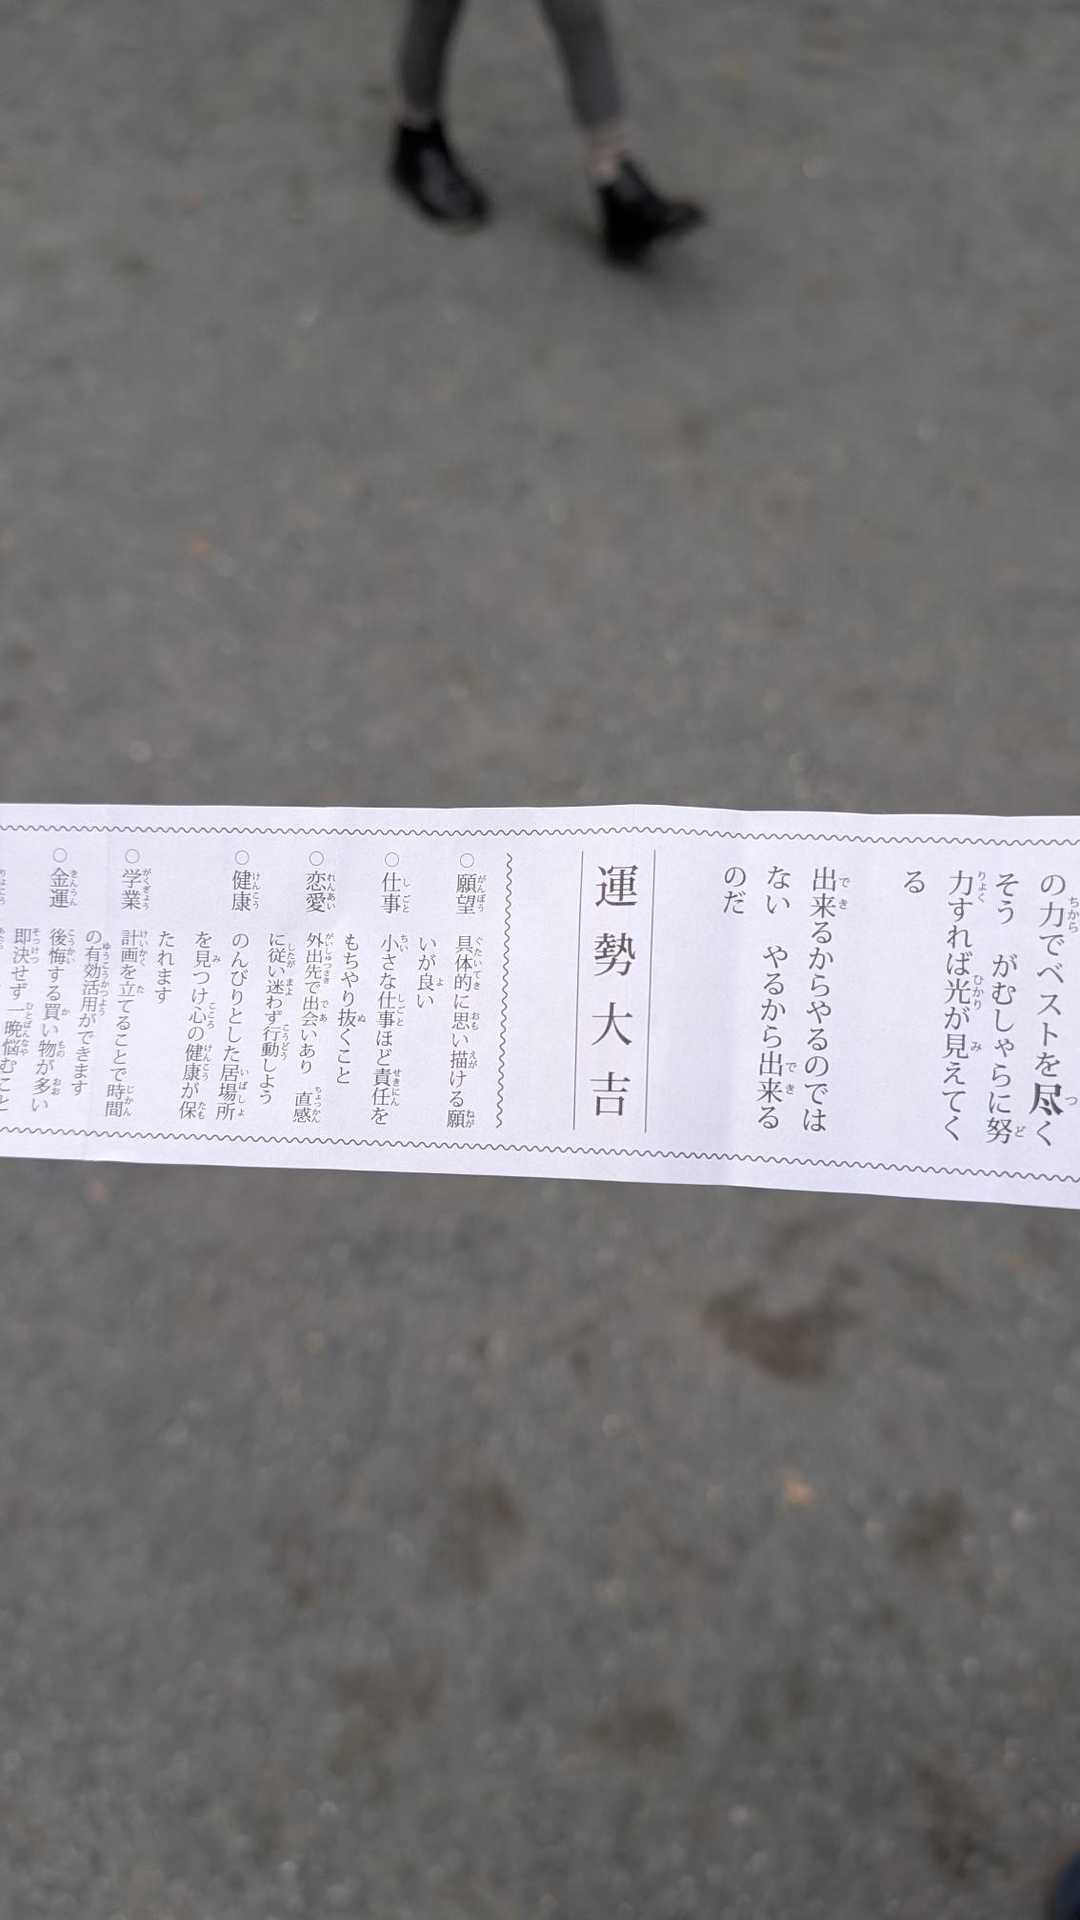 の力でベストを尽く
そう　がむしゃらに努
力すれば光が見えてく
る
出来るからやるのでは
ない　やるから出来る
のだ
運勢大吉
○願望　具体的に思い描ける願
いが良い
○仕事　小さな仕事ほど責任を
もちやり抜くこと
○恋愛　外出先で出会いあり　直感
に従い迷わず行動しよう
○健康　のんびりとした居場所
を見つけ心の健康が保
たれます
○学業　計画を立てることで時間
の有効活用ができます
○金運　後悔する買い物が多い
即決せず一晩悩むこと